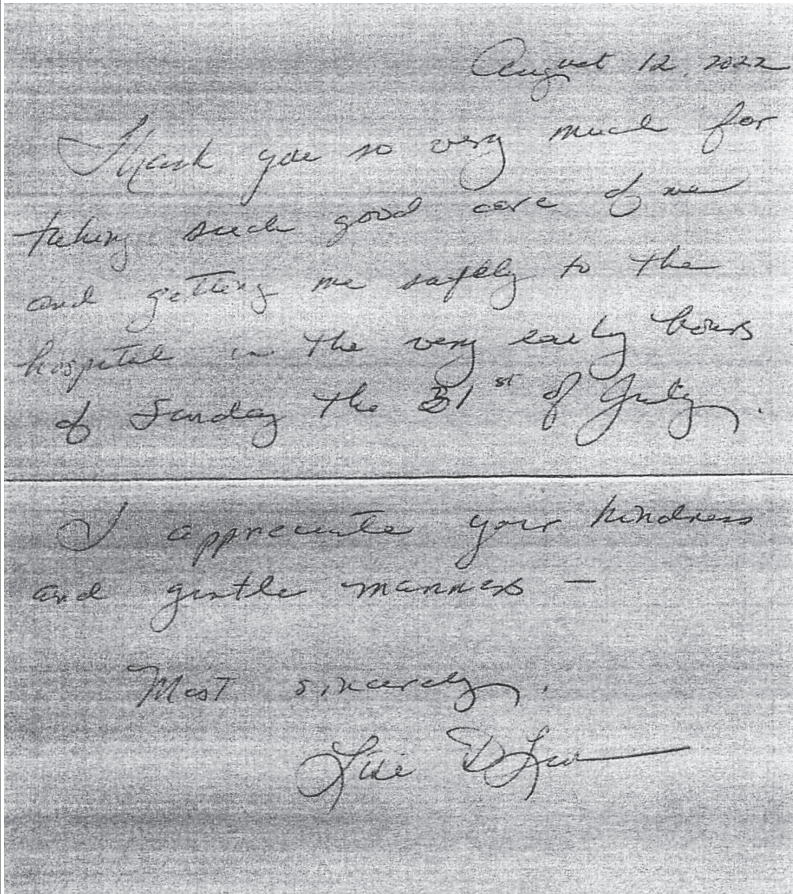 August 12, 2022
Thank you so very much for
taking such good care of me
and getting me safely to the
hospital in the very early hours
of Sunday the 31st of July.
I appreciate your kindness
and gentle manners —
Most sincerely,